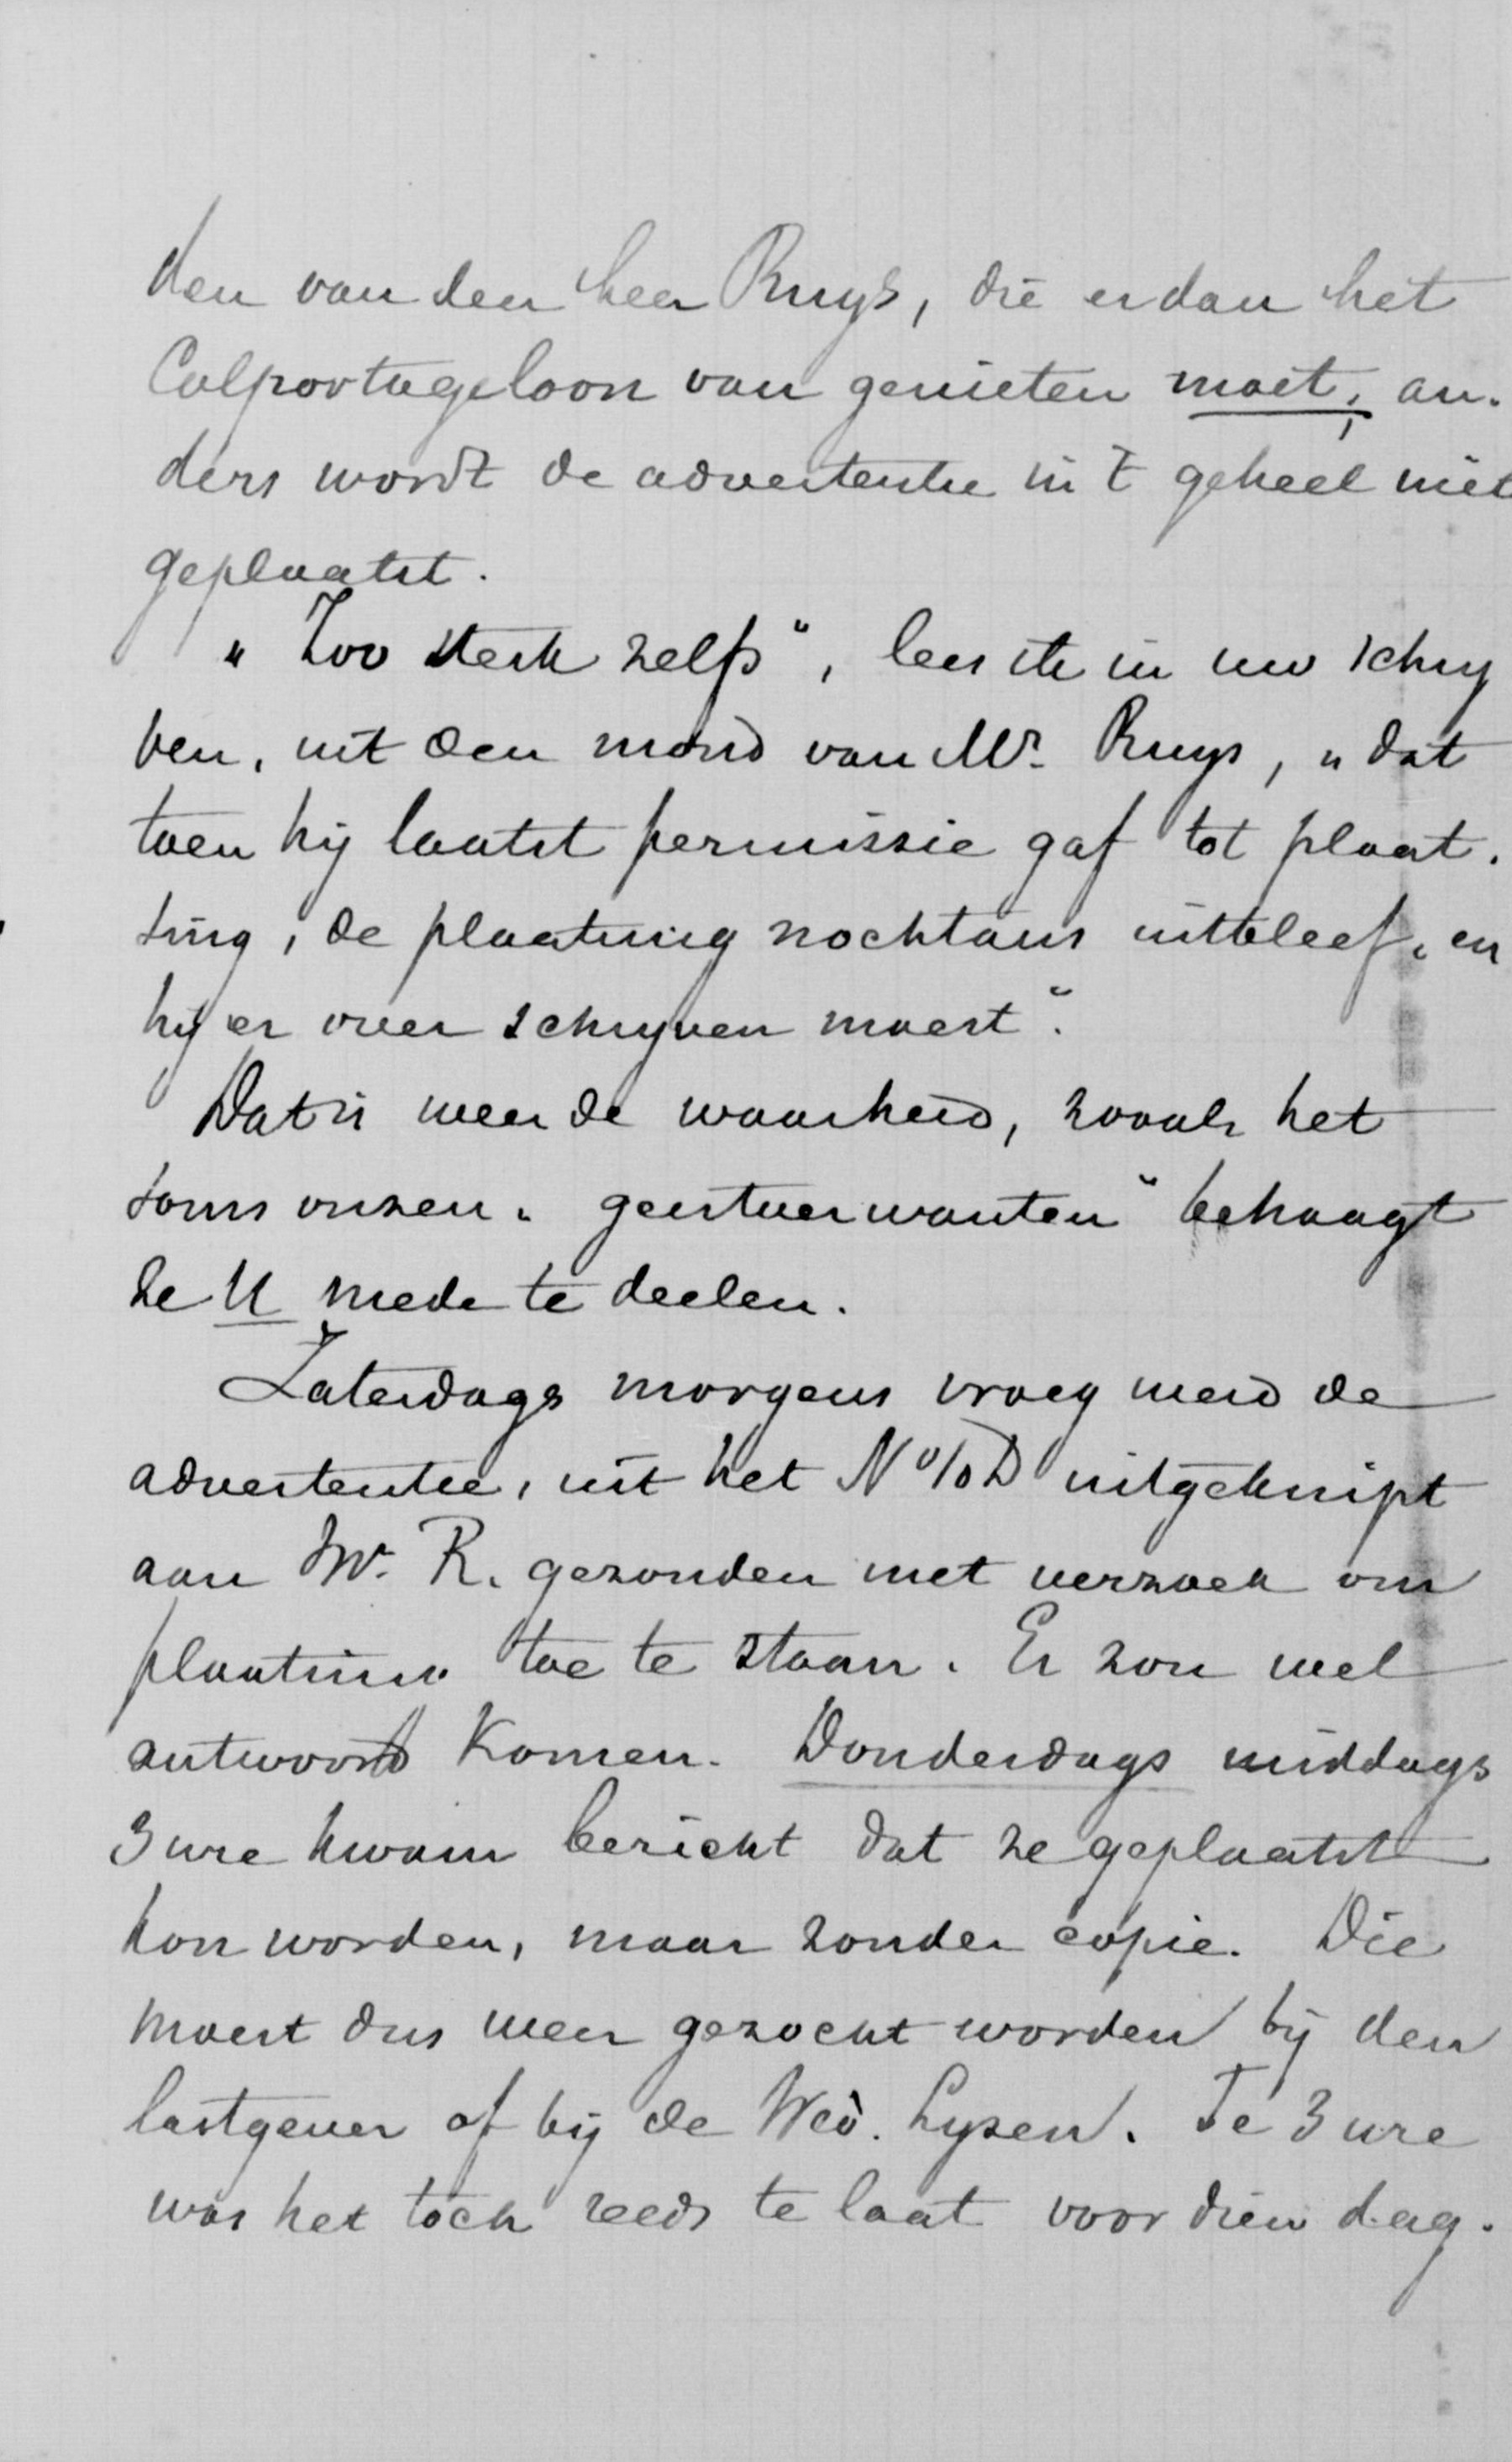 den van den heer Ruys, die er dan het
Colportageloon van genieten moet; an-
ders wordt de advertentie in 't geheel niet
geplaatst.
"Zoo sterk zelfs", lees ik in uw schrij
ven, uit den mond van Mr. Ruys, "dat
toen hij laatst permissie gaf tot plaat-
sing, de plaatsing nochtans uitbleef, en
hij er over schrijven moest".
Dat is weer de waarheid, zooals het
soms onzen "geestverwanten" behaagt
ze U mede te deelen.
Zaterdags morgens vroeg werd de
advertentie, uit het N v/d D uitgeknipt
aan Mr. R. gezonden met verzoek om
plaatsing toe te staan. Er zou wel
antwoord komen. Donderdags middags
3 ure kwam bericht dat ze geplaatst
kon worden, maar zonder copie. Die
moest dus weer gezocht worden bij den
lastgever of bij de Wed. Lysen. Te 3 ure
was het toch reeds te laat voor dien dag.